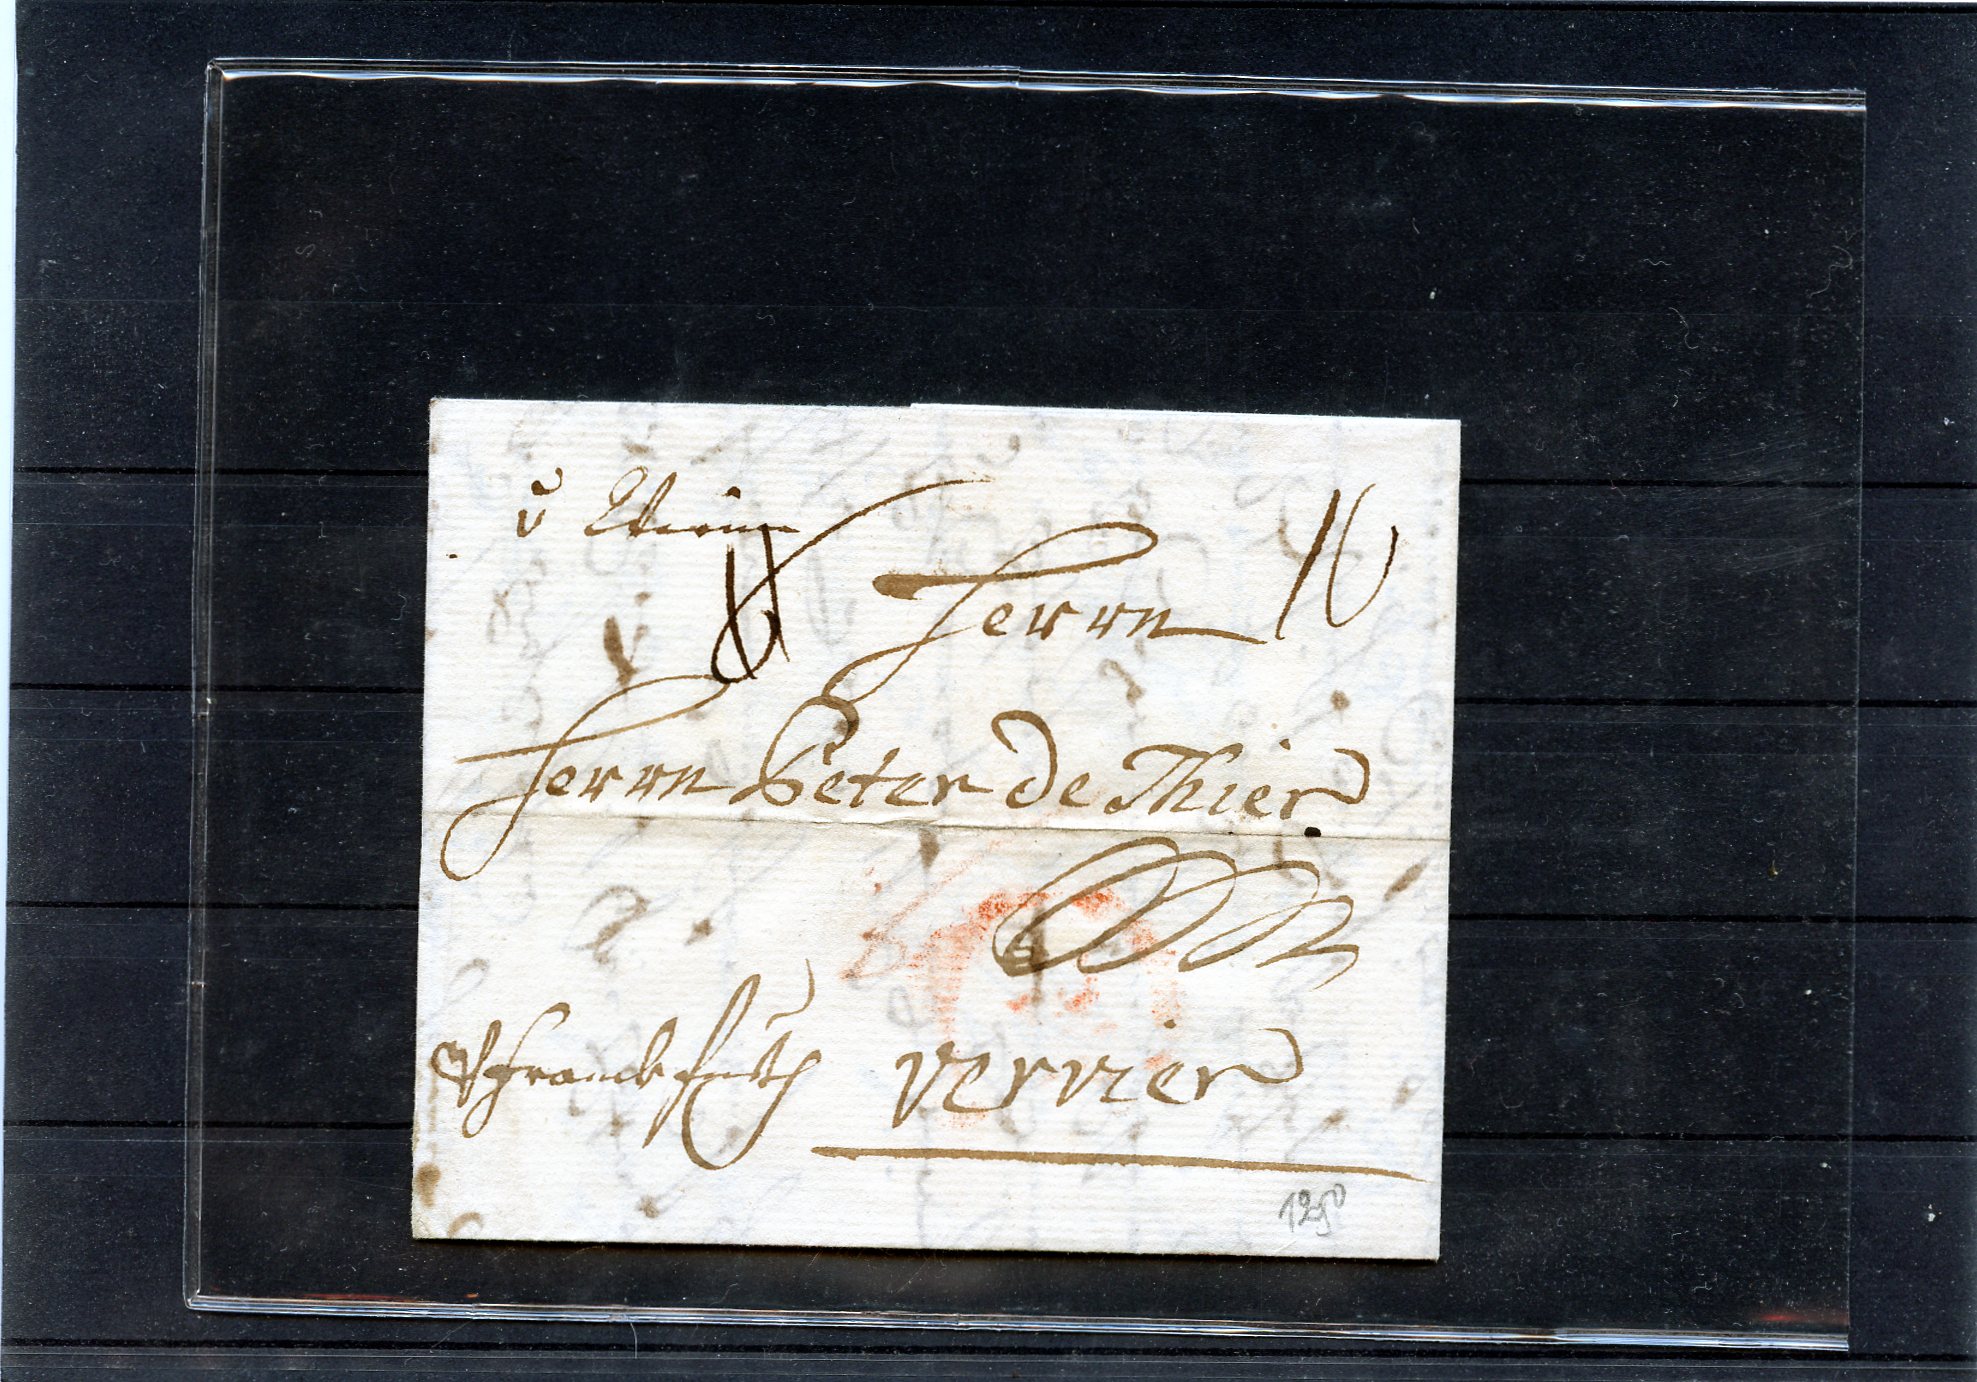 v Wien
Herrn 16
Herrn Peter de Thier
franckfurth Vervier
1250